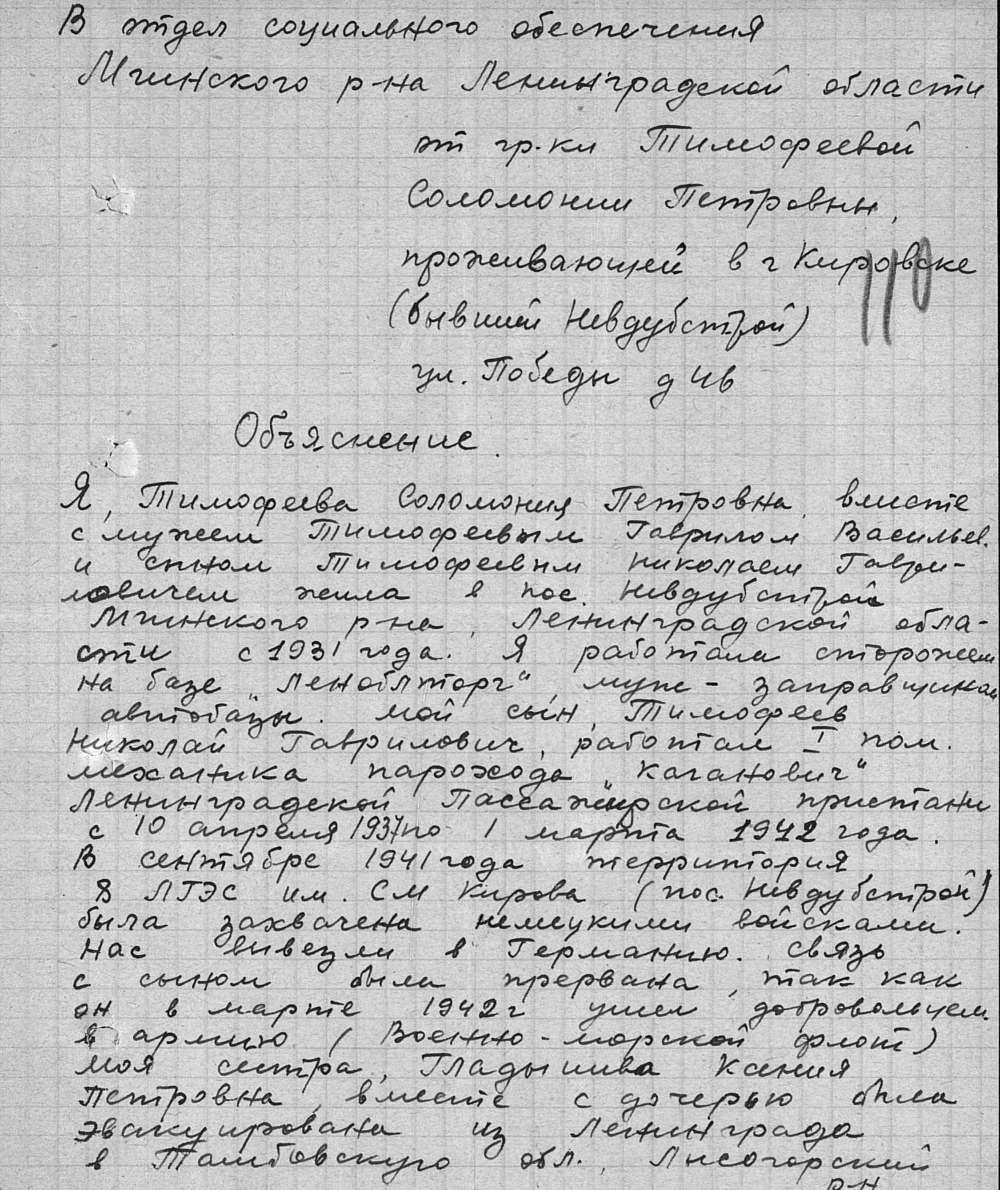 В отдел социального обеспечения
Мгинского р-на Ленинградской области
от гр.-ки Тимофеевой
Соломонии Петровны,
проживающей в г Кировске
110
(бывший Невдубстрой)
ул. Победы д
Объяснение.
Я, Тимофеева Соломония Петровна, вместе
с мужем Тимофеевым Гаврилом Васильев.
и сыном Тимофеевым Николаем Гаври-
ловичем жила в пос. Невдубстрой
Мгинского р-на, Ленинградской обла-
сти с 1931 года. Я работала сторожем
на базе „Леноблторг“, муж - заправщиком
автобазы. Мой сын, Тимофеев
Николай Гаврилович, работал I пом.
механика парохода „Каганович“
Ленинградской Пассажирской пристани
с 10 апреля 1937 по 1 марта 1942 года.
В сентябре 1941 года территория
8 ЛГЭС им. СМ Кирова (пос. Невдубстрой)
была захвачена немецкими войсками.
Нас вывезли в Германию. Связь
с сыном была прервана, так как
он в марте 1942 г ушел добровольцем
в армию (Военно-морской флот)
Моя сестра, Гладышива Ксения
Петровна, вместе с дочерью была
эвакуирована из Ленинграда
в Тамбовскую обл., Лысогорский
р-н